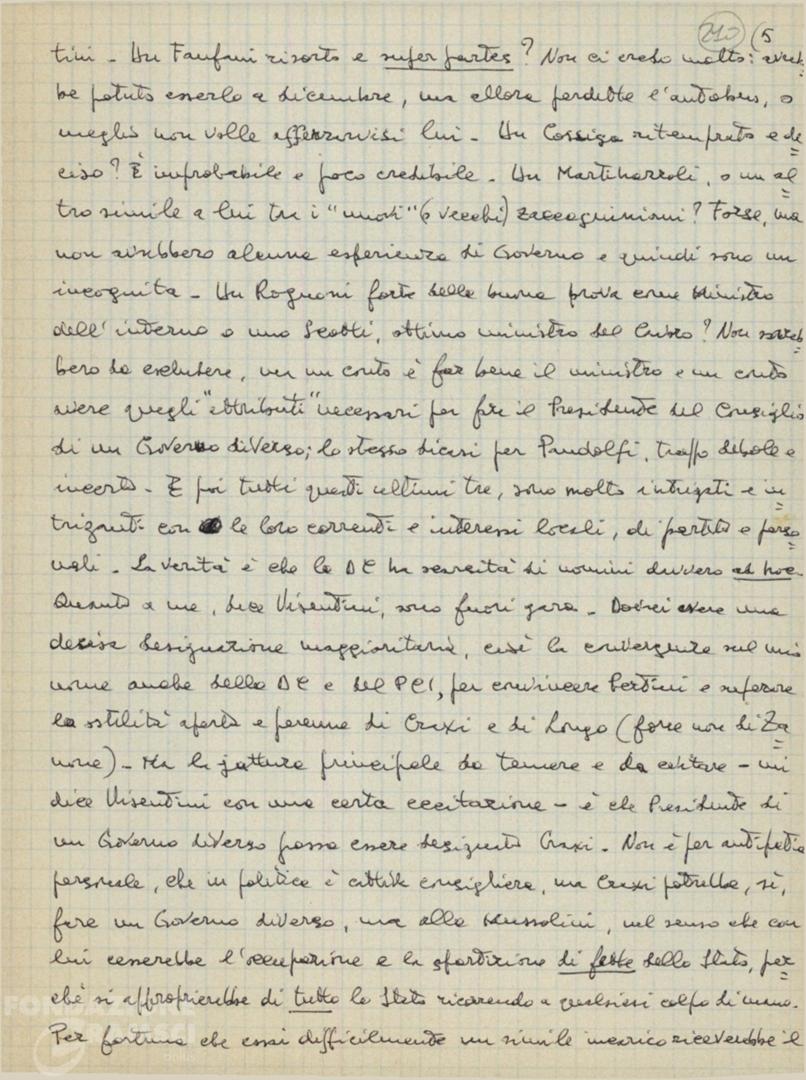 210 (5
tini - Un Fanfani risorto e super partes? Non ci credo molto: avreb=
be potuto esserlo a dicembre, ma allora perdette l'autobus, o
meglio non volle afferrarvisi lui - Un Cossiga ritemprato e de=
ciso? È improbabile e poco credibile - Un Martinazzoli, o un al=
tro simile a lui tra i "nuovi" (o vecchi) zaccagniniani? Forse, ma
non avrebbero alcuna esperienza di Governo e quindi sono un
incognita - Un Rognoni forte della buona prova come Ministro
dell'interno o uno Scotti, ottimo ministro del lavoro? Non sareb=
bero da escludere, ma un conto è far bene il ministro e un conto
avere quegli "attributi" necessari per fare il Presidente del Consiglio
di un Governo diverso; lo stesso dicasi per Pandolfi, troppo debole e
incerto - E poi tutti questi ultimi tre, sono molto intrigati e in=
triganti con le loro correnti e interessi locali, di partito e perso=
nali - La verità è che la DC ha scarsità di uomini davvero ad hoc.
Quanto a me, dice Visentini, sono fuori gara - Dovrei avere una
decisa designazione maggioritaria, cioè la convergenza sul mio
nome anche della DC e del PCI, per convincere Pertini e superare
la ostilità aperta e perenne di Craxi e di Longo (forse non di Za=
none) - Ma la jattura principale da temere e da evitare - mi
dice Visentini con una certa eccitazione - è che Presidente di
un Governo diverso possa essere designato Craxi - Non è per antipatia
personale, che in politica è cattiva consigliera, ma Craxi potrebbe, sì,
fare un Governo diverso, ma alla Mussolini, nel senso che con
lui cesserebbe l'occupazione e la spartizione di fette dello Stato, per=
chè si approprierebbe di tutto lo Stato ricorrendo a qualsiasi colpo di mano.
Per fortuna che assai difficilmente un simile incarico riceverebbe il